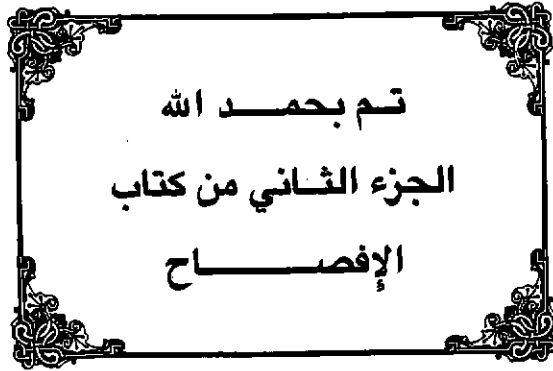 تم بحمد الله
الجزء الثاني من كتاب
الإفصاح